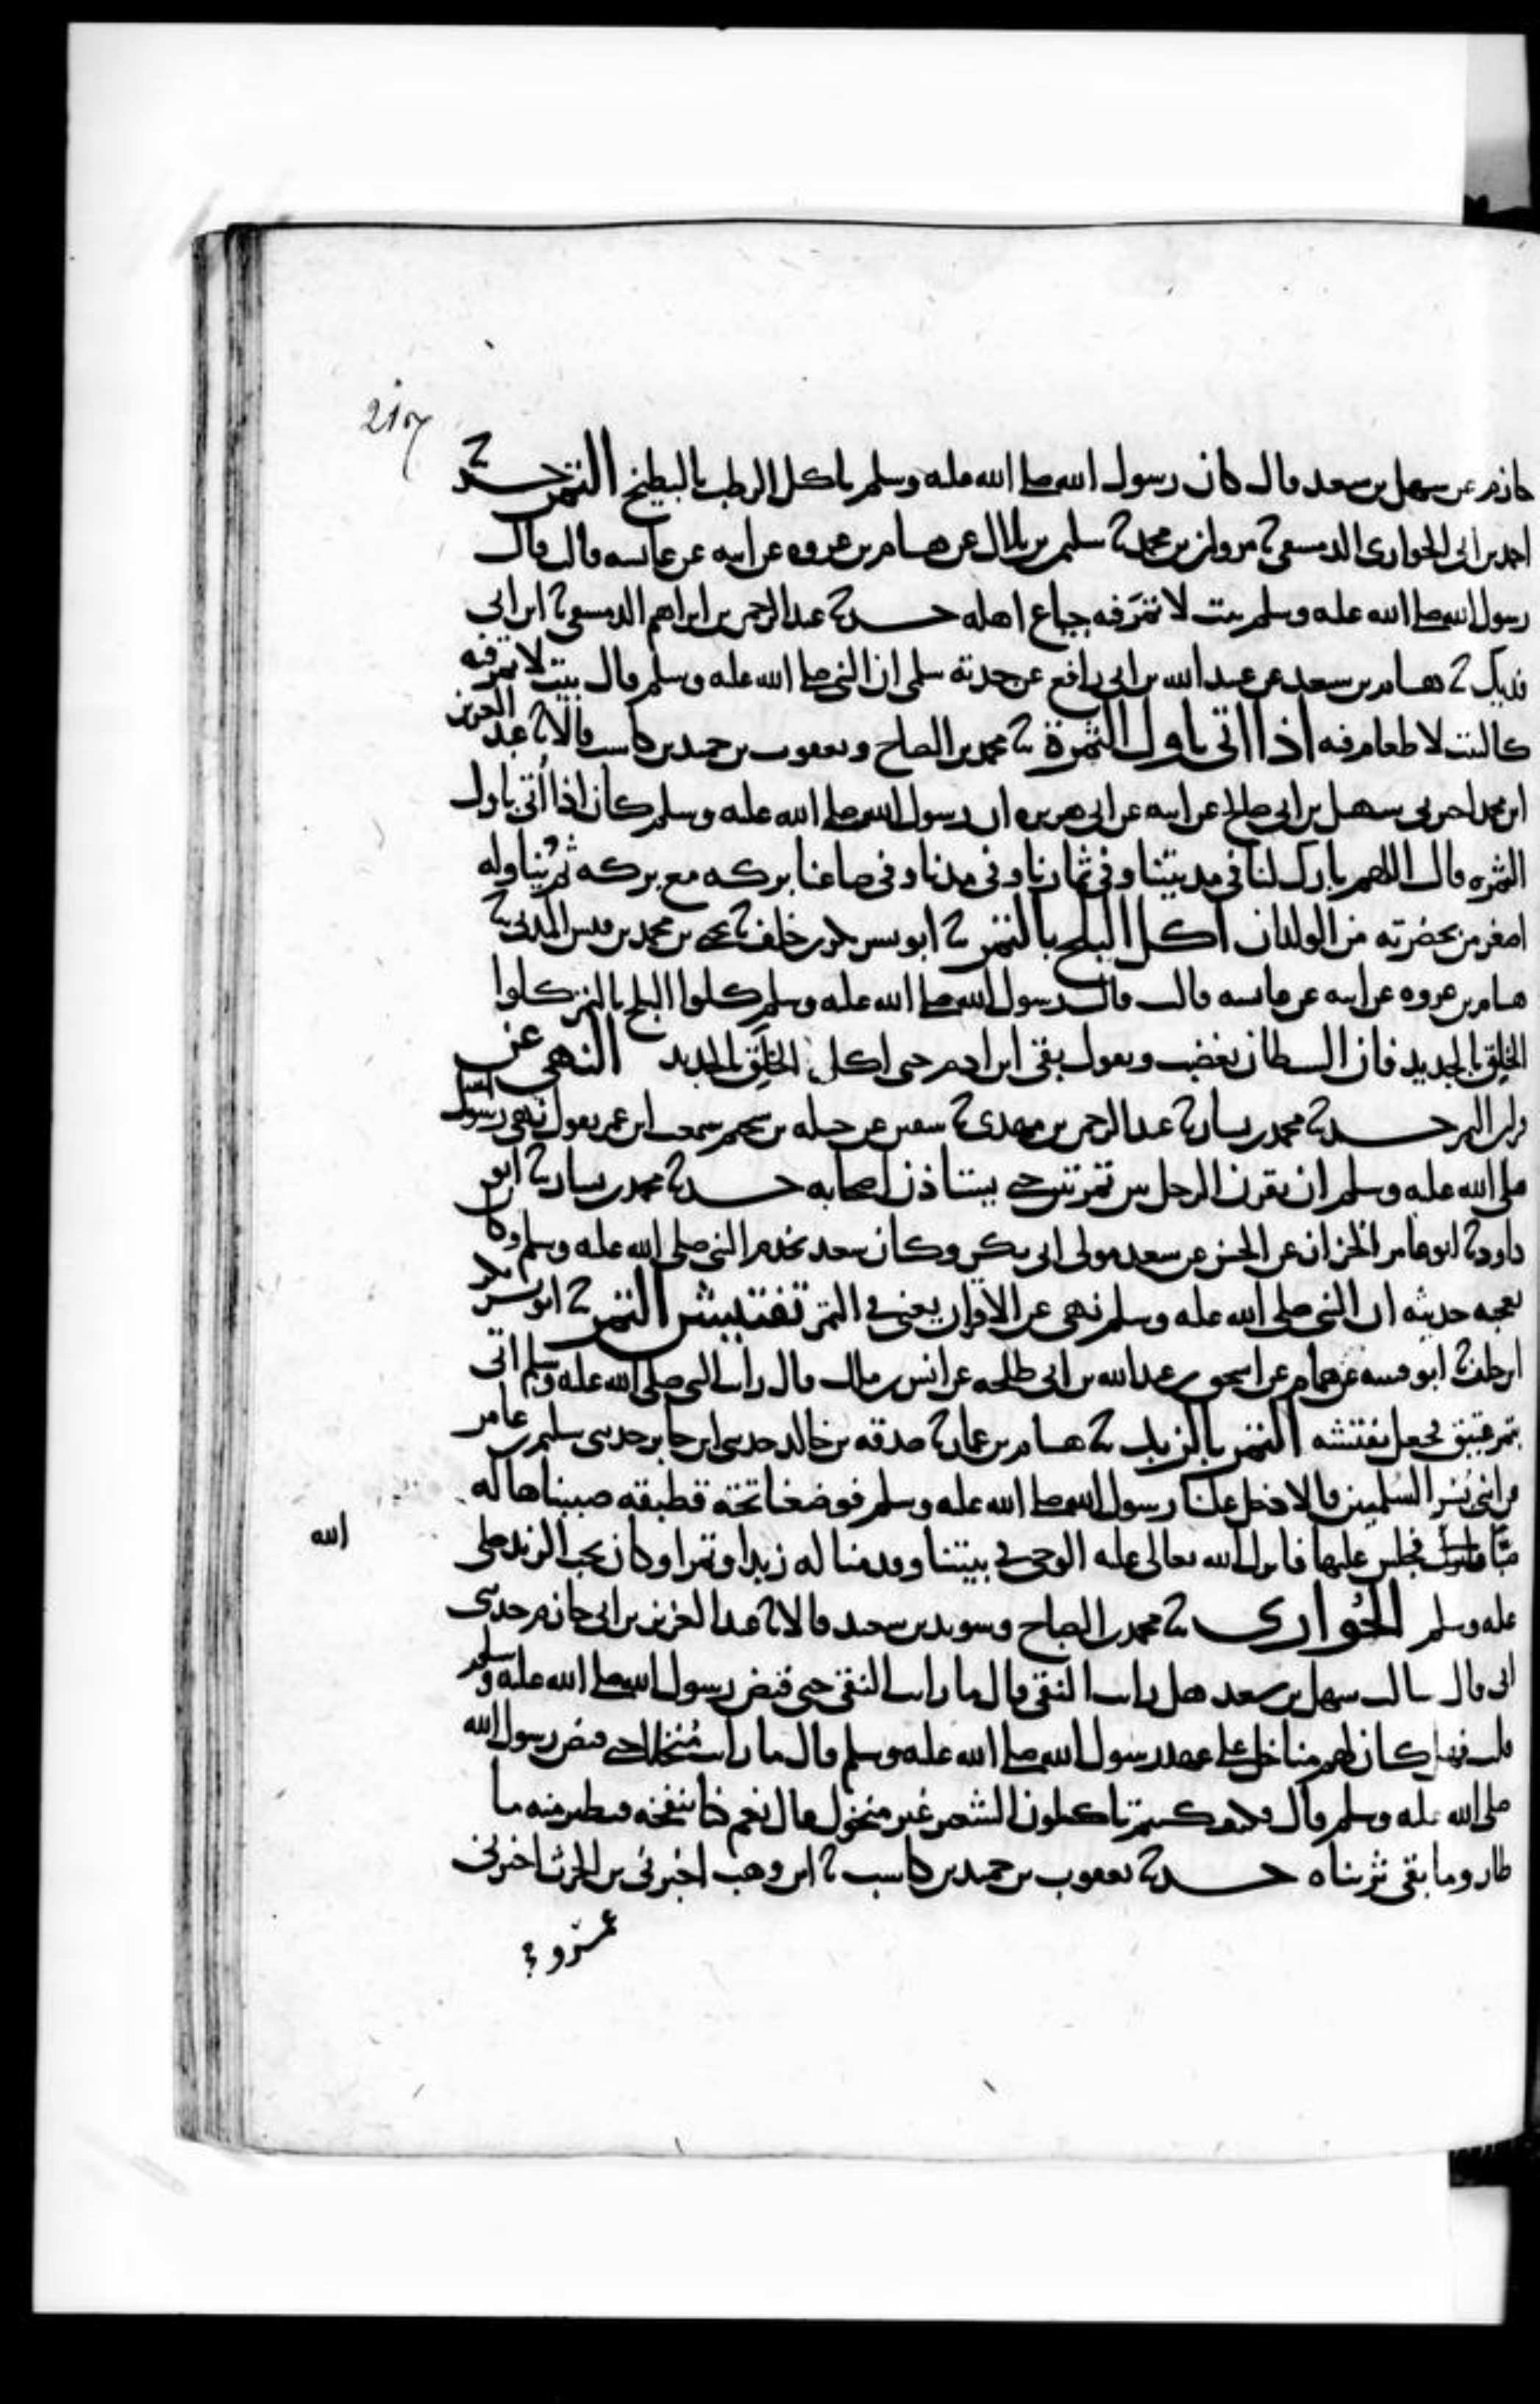 217
حازم عن سهل بن سعد قال كان رسول الله صلى الله عليه وسلم ياكل الرطب بالبطيخ التمر حدثنا
احمد بن ابي الحواري الدمشقي ثنا مروان بن محمد ثنا سليمن بن بلال عن هشام بن عروه عن ابيه عن عائشه قالت قال
رسول الله صلى الله عليه وسلم بيت لا تمر فيه جياع اهله حدثنا عبد الرحمن بن ابراهيم الدمشقي ثنا ابن ابي
فديك ثنا هشام بن سعد عن عبيد الله بن ابي رافع عن جدته سلمى ان النبي صلى الله عليه وسلم قال بيت لا تمر فيه
كالبيت لا طعام فيه اذا اتى باول الثمرة ثنا محمد بن الصباح ويعقوب بن حميد بن كاسب قالا ثنا عبد العزيز
ابن محمد اخبرني سهيل بن ابي صالح عن ابيه عن ابي هريره ان رسول الله صلى الله عليه وسلم كان اذا أتي باول
الثمره قال اللهم بارك لنا في مدينتنا وفي ثمارنا وفي مدنا وفي صاعنا بركه مع بركه ثم يُناوله
اصغر من بحضرته من الولدان اكل البلح بالتمر ثنا ابو بشر بكر بن خلف ثنا يحيى بن محمد بن قيس المدني ثنا
هشام بن عروه عن ابيه عن عائشه قالت قال رسول الله صلى الله عليه وسلم كلوا البلح بالتمر كلوا
الخلق بالجديد فان الشيطان يغضب ويقول بقي ابن ادم حتى اكل الخلق بالجديد النهي عن
قران التمر حدثنا محمد بن بشار ثنا عبد الرحمن بن مهدي ثنا سفين عن جبله بن سحيم سمعت ابن عمر يقول نهى رسول الله
صلى الله عليه وسلم ان يقرن الرجل بين تمرتين حتى يستاذن اصحابه حدثنا محمد بن بشار ثنا ابو
داود ثنا ابو عامر الخزاز عن الحسن عن سعد مولى ابي بكر وكان سعد يخدم النبي صلى الله عليه وسلم وكان
يعجبه حديثه ان النبي صلى الله عليه وسلم نهى عن الاقران يعني في التمر تفتيش التمر ثنا ابو بشر بكر
ابن خلف ثنا ابو قتيبه عن همام عن اسحق بن عبد الله بن ابي طلحه عن انس بن مالك قال رايت النبي صلى الله عليه وسلم اتى
بتمر عتيق فجعل يفتشه التمر بالزبد ثنا هشام بن عمار ثنا صدقه بن خالد حدثني ابن جابر حدثني سليم بن عامر
عن ابني بُسر السُلميين قالا دخل علينا رسول الله صلى الله عليه وسلم فوضعنا تحته قطيفه صببناها له
صبّا فجلس عليها فانزل الله تعالى عليه الوحي في بيتنا وقدمنا له زبدا وتمرا وكان يحب الزبد صلى
الله
عليه وسلم الحُوارى ثنا محمد بن الصباح وسويد بن سعيد قالا ثنا عبد العزيز بن ابي حازم حدثني
ابي قال سالت سهل بن سعد هل رايت النقي قال ما رايت النقي حتى قبض رسول الله صلى الله عليه وسلم
قلت فهل كان لهم مناخل على عهد رسول الله صلى الله عليه وسلم قال ما رايت مُنخلا حتى قبض رسول الله
صلى الله عليه وسلم قال فكيف كنتم تاكلون الشعير غير منخول قال نعم كنا ننفخه فيطير منه ما
طار وما بقي ثريناه حدثنا يعقوب بن حميد بن كاسب ثنا ابن وهب اخبرني بن الحرث اخبرني
عمرو